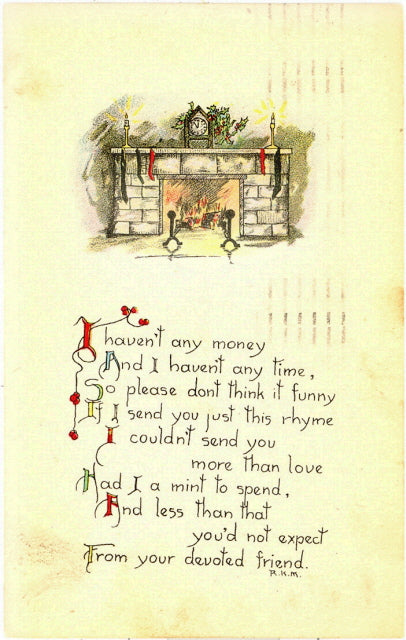 I haven't any money
And I haven't any time,
So please dont think it funny
If I send you just this rhyme
I couldn't send you
more than love
Had I a mint to spend,
And less than that
you'd not expect
From your devoted friend.
R.K.M.